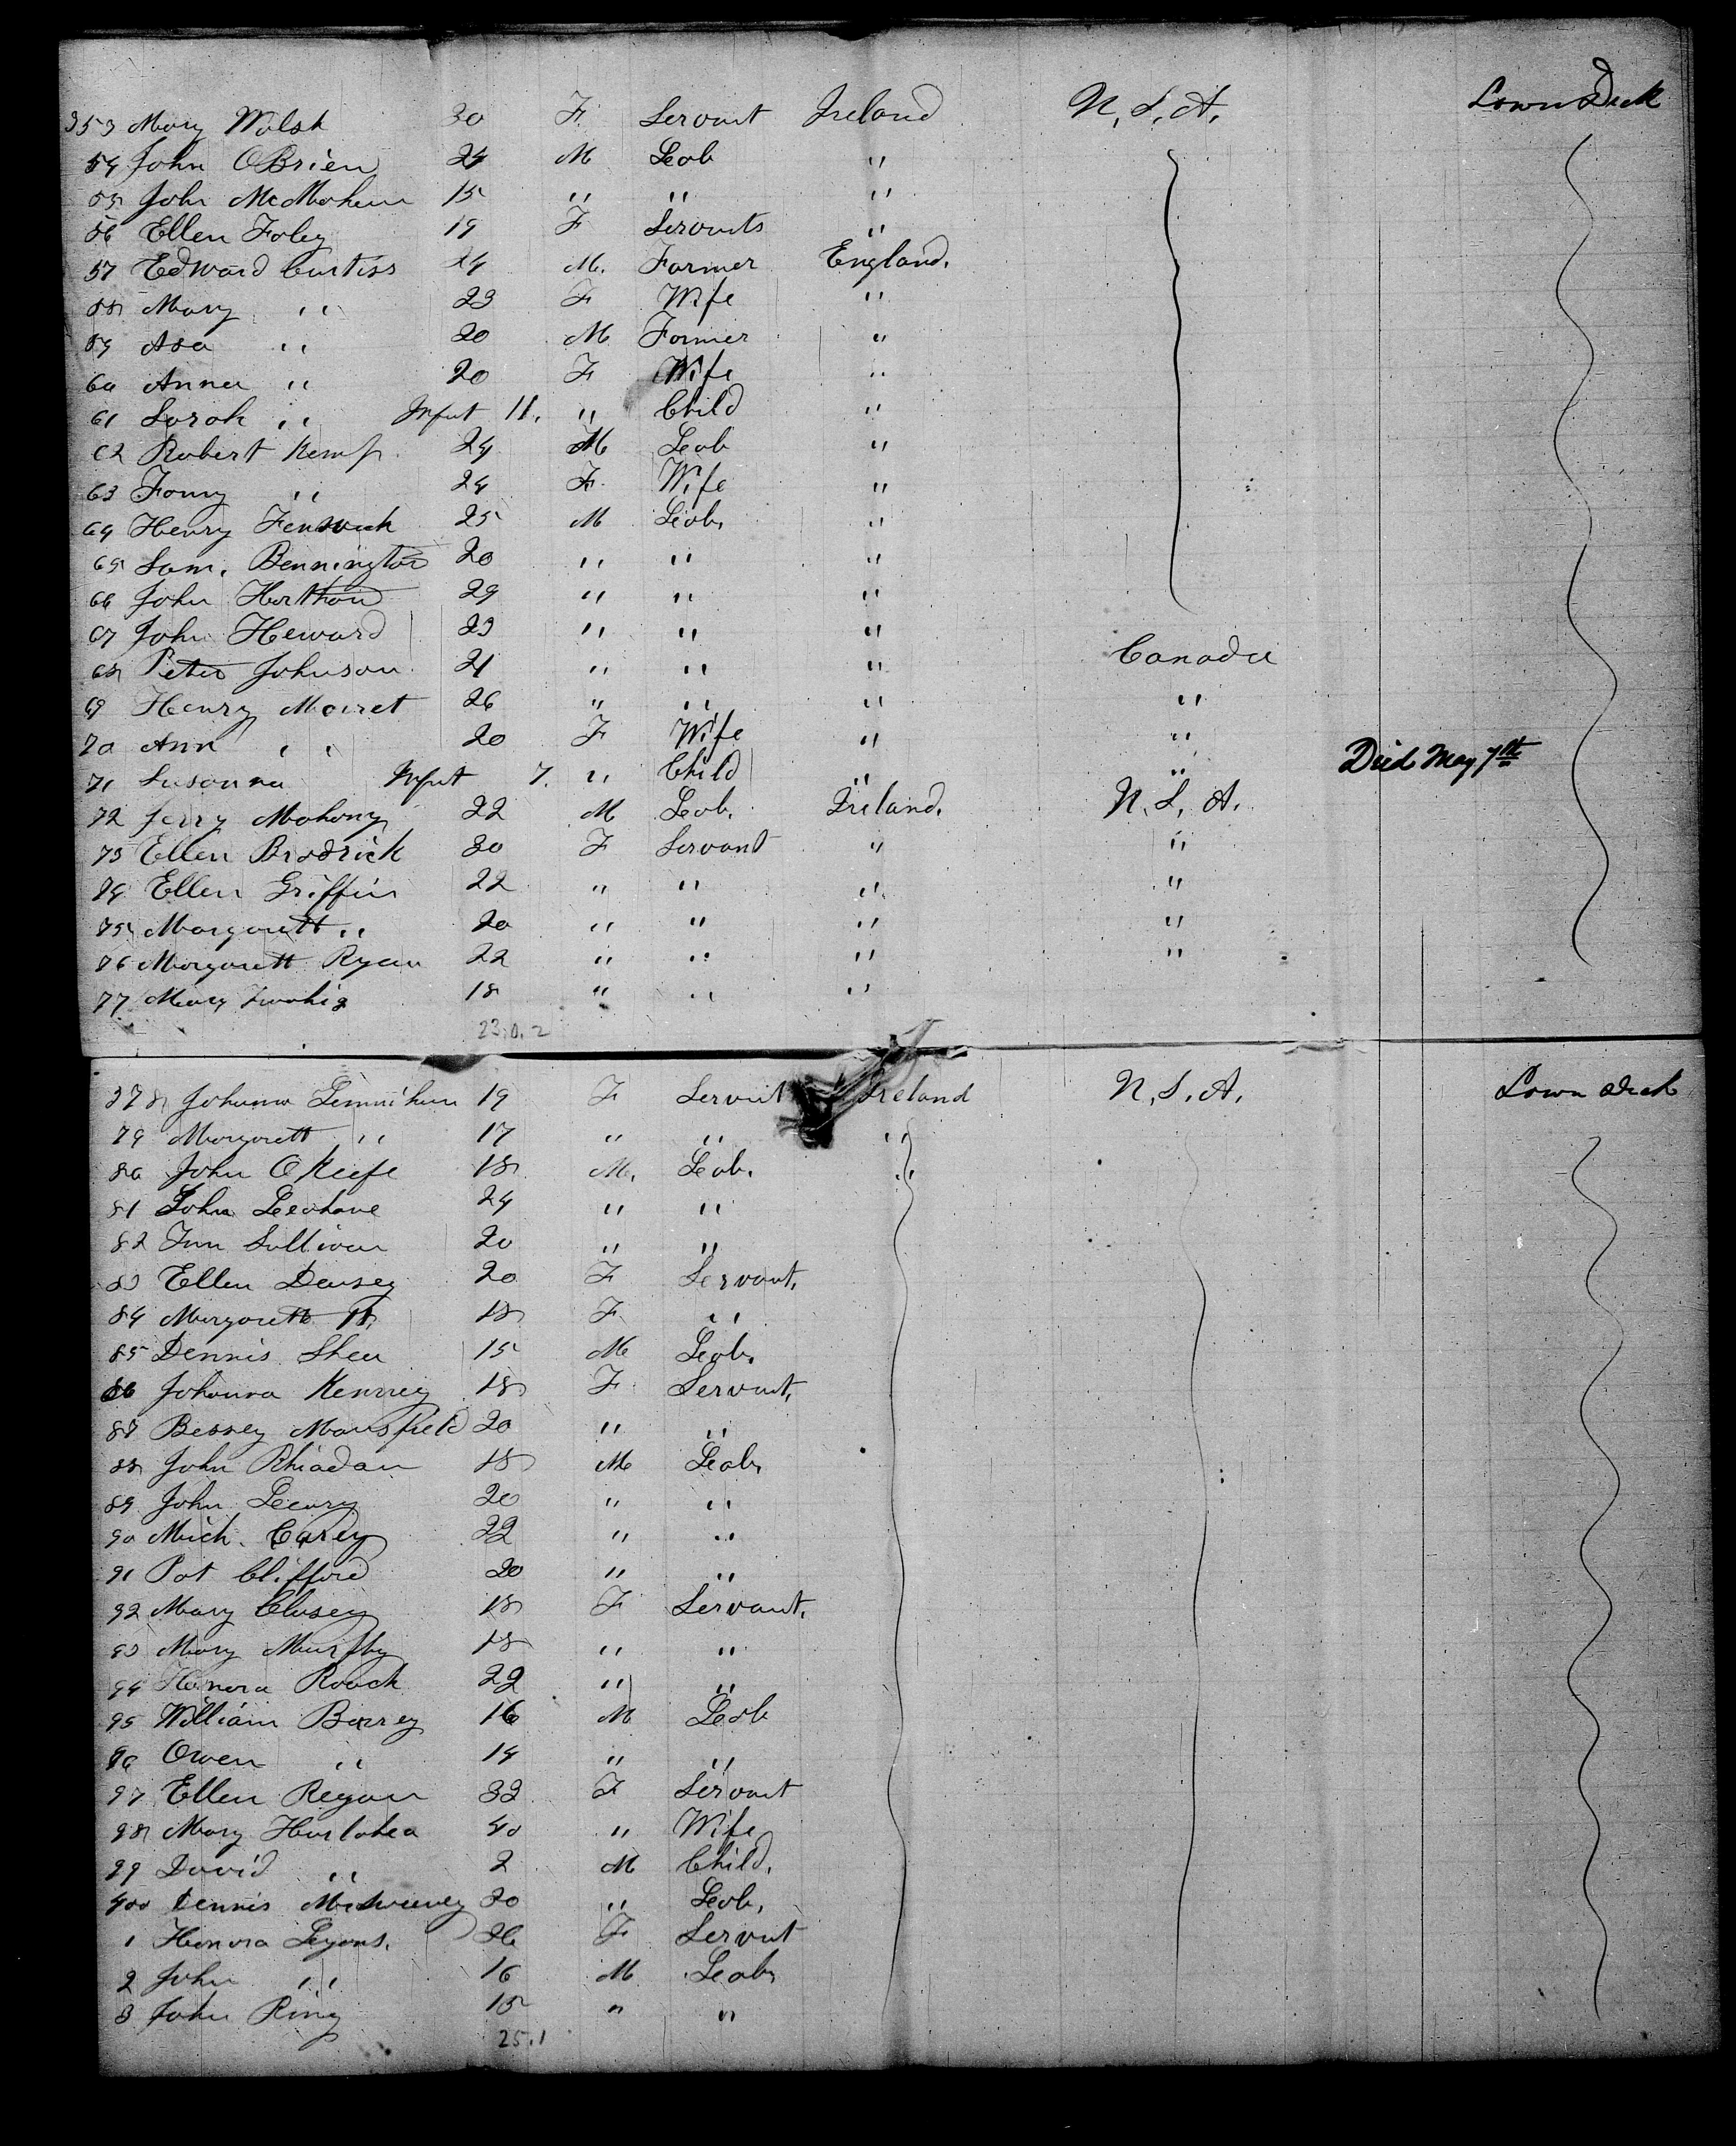 353 Mary Walsh 30 F. Servant Ireland N. S. A. Lown Deck
54 John OBrien 24 M Leob "
55 John McMahem 15 " " "
56 Ellen Foley 19 F Servants "
57 Edward Curtiss 24 M. Farmer England.
58 Mary " 23 F Wife "
59 Asa " 20 M Farmer "
60 Anna " 20 F Wife "
61 Sarah " Infut 11. " Child "
62 Robert Kemp 24 M Leob "
63 Fanny " 24 F. Wife "
64 Henry Fenswick 25 M Leob, "
65 Sam. Bennington 20 " " "
66 John Horthon 29 " " "
67 John Heward 23 " " "
68 Peter Johnson 21 " " " Canada
69 Henry Moiret 26 " " " "
70 Ann " 20 F Wife " "
71 Susanna Infut 7. " Child " " Died May 7th
72 Jerry Mahony 22 M Leob. Ireland. N. S. A.
73 Ellen Brodrick 30 F Servant " "
74 Ellen Griffin 22 " " " "
75 Margarett " 20 " " " "
76 Margarett Ryan 22 " " " "
77 Mary Twohig 18 " " "
23.0.2
378 Johanna Lennihan 19 F Servant Ireland N. S. A. Lown Deck
79 Margarett " 17 " " "
80 John O Keefe 18 M. Leob. "
81 John Leehane 24 " "
82 Sullivan 20 " "
83 Ellen Dausey 20 F Servant.
84 Margarett 18 F "
85 Dennis Shea 15 M Leob.
86 Johanna Kenney 18 F Servant.
87 Bessey Mansfield 20 " "
88 John Rhiadan 18 M Leob,
89 John Leary 20 " "
90 Mich. Carey 22 " "
91 Pat Clifford 20 " "
92 Mary Clusey 18 F Servant.
93 Mary Murphy 18 " "
94 Honora Roach 22 " "
95 William Barrey 16 M Leob
96 Owen " 14 " "
97 Ellen Regan 32 F Servant
98 Mary Hurlahea 40 " Wife
99 David " 2 M Child.
400 Dennis McSweeney 30 " Leob,
1 Honora Lyons. 26 F Servant
2 John " 16 M Leob,
3 John Ring 15 " "
25.1